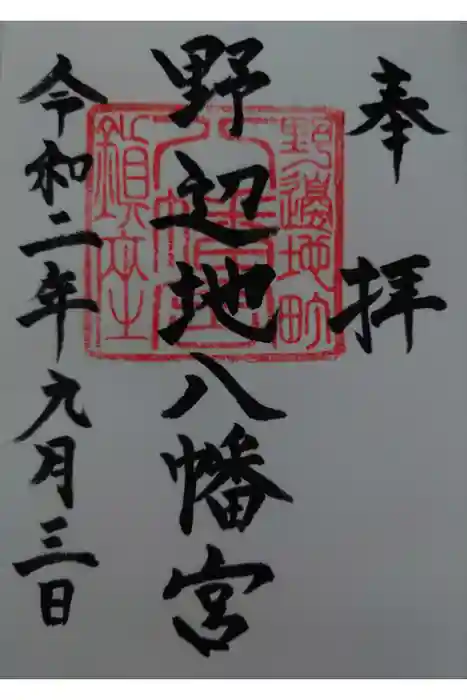 奉拝
野辺地八幡宮
令和二年九月三日
野邊地町
八幡宮
鎮座